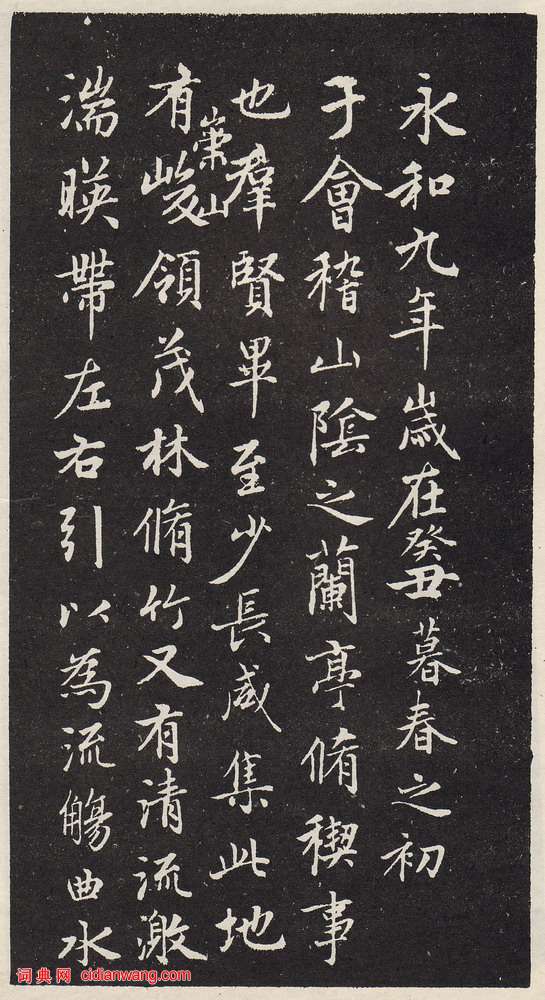 永和九年歲在癸丑暮春之初
于會稽山陰之蘭亭脩稧事
也羣賢畢至少長咸集此地
有崇山峻領茂林脩竹又有清流激
湍暎帶左右引以為流觴曲水
词典网 cidianwang.com